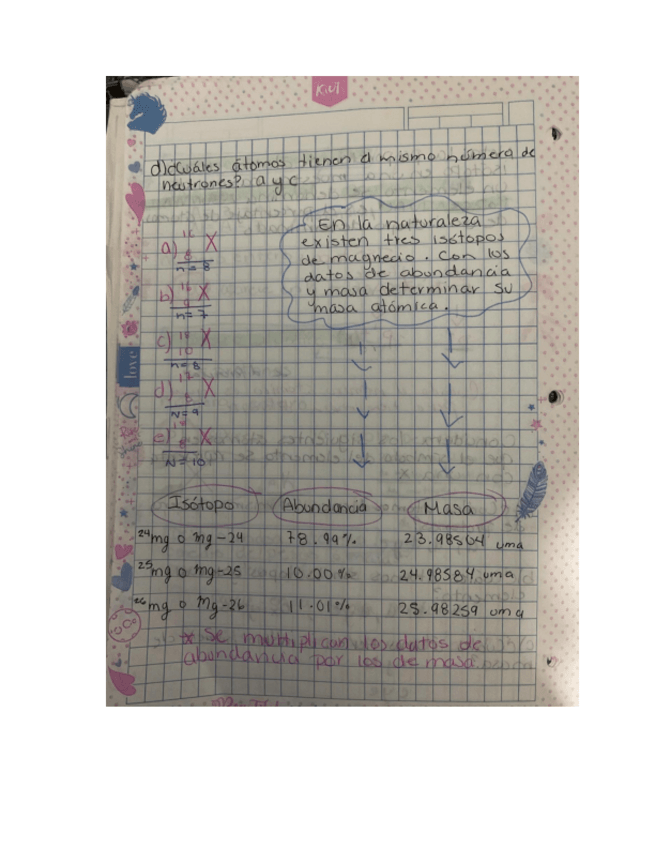 Kiut
d) ¿Cuáles átomos tienen el mismo número de
neutrones? a y c
En la naturaleza
existen tres isótopos
de magnecio. Con los
datos de abundancia
y masa determinar su
masa atómica.
a) 16 8 X
n=8
b) 16 9 X
n=7
c) 18 10 X
n=8
d) 17 8 X
N=9
e) 8 X
N=10
love
Isótopo Abundancia Masa
24mg o mg-24 78.99% 23.98504 uma
25mg o mg-25 10.00% 24.98584 uma
26mg o mg-26 11.01% 25.98259 uma
* Se multiplican los datos de
abundancia por los de masa